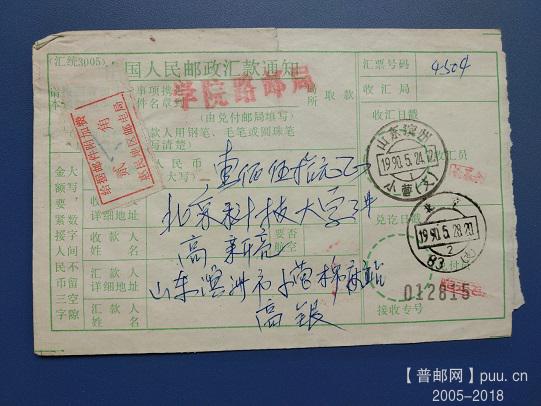 (汇统3005)
国人民邮政汇款通知
汇票号码 4504
学院路邮局
收汇局
所取款
收汇日戳
(由兑付邮局填写)
款人用钢笔、毛笔或圆珠笔
写清楚
给据邮件附加费
贰角
山东滨州
1990.5.24.12
1
小营(支)
收汇员
人民币
大写)
壹佰伍拾元正
收款人
详细地址
北京科技大学
收款人
姓名
高新亮
要否
航空
兑讫日戳
北京
1990.5.28.20
2
83(支)
汇款人
详细地址
山东滨州市小营棉麻站
汇款人
姓名
高银
012815
接收专号
金额要紧接人民币不留三字空隙
【普邮网】puu.cn
2005-2018